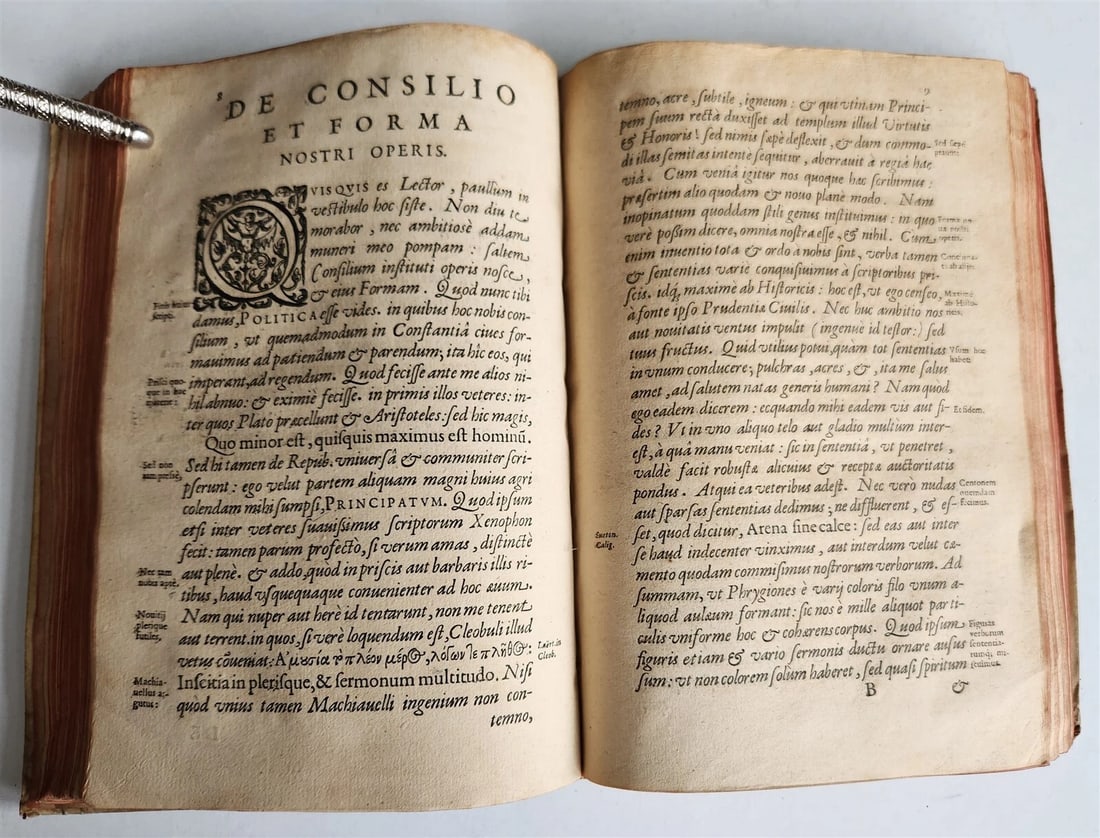 8
DE CONSILIO
ET FORMA
NOSTRI OPERIS.
QVISQVIS es Lector, paullùm in
vestibulo hoc siste. Non diu te
morabor, nec ambitiosè addam
muneri meo pompam: saltem
Consilium instituti operis nosce,
& eius Formam. Quod nunc tibi
damus, POLITICA esse vides. in quibus hoc nobis con-
silium, vt quemadmodum in Constantiâ ciues for-
mauimus ad patiendum & parendum; ita hîc eos, qui
imperant, ad regendum. Quod fecisse ante me alios ni-
hil abnuo: & eximiè fecisse. in primis illos veteres: in-
ter quos Plato præcellunt & Aristoteles: sed hic magis,
Quo minor est, quisquis maximus est hominū.
Sed non
Sed hi tamen de Repub. vniuersâ & communiter scri-
pserunt: ego velut partem aliquam magni huius agri
colendam mihi sumpsi, PRINCIPATVM. Quod ipsum
etsi inter veteres suauissimus scriptorum Xenophon
fecit: tamen parum profectò, si verum amas, distinctè
Nec tam
aut plenè. & addo, quòd in priscis aut barbaris illis ri-
tibus, haud vsquequaque conuenienter ad hoc æuum.
Nouitij
plerique
futiles,
Nam qui nuper aut herè id tentarunt, non me tenent
aut terrent. in quos, si verè loquendum est, Cleobuli illud
Laërt. in
Cleob.
vetus cōueniat: Ἀμουσία τὸ πλέον μέρος, λόγων τε πλῆθος:
Inscitia in plerisque, & sermonum multitudo. Nisi
Machia-
uellus ar-
gutus:
quòd vnius tamen Machiauelli ingenium non con-
temno,
9
temno, acre, subtile, igneum: & qui vtinam Princi-
pem suum rectà duxisset ad templum illud Virtutis
& Honoris! sed nimis sæpè deflexit, & dum commo-
Sed sæpè
prauus.
di illas semitas intentè sequitur, aberrauit à regiâ hac
viâ. Cum veniâ igitur nos quoque hæc scribimus:
præsertim alio quodam & nouo planè modo. Nam
inopinatum quoddam stili genus instituimus: in quo
verè possim dicere, omnia nostra esse, & nihil. Cum
enim inuentio tota & ordo à nobis sint, verba tamen
& sententias variè conquisiuimus à scriptoribus pri-
scis. idq́; maximè ab Historicis: hoc est, vt ego censeo,
Maximè
ab Histo-
ricis.
à fonte ipso Prudentiæ Ciuilis. Nec huc ambitio nos
aut nouitatis ventus impulit (ingenuè id testor:) sed
tuus fructus. Quid vtilius potui, quàm tot sententias
Vsum hæc
habet:
in vnum conducere; pulchras, acres, &, ita me Salus
amet, ad salutem natas generis humani? Nam quod
ego eadem dicerem: ecquando mihi eadem vis aut fi-
Et fidem.
des? Vt in vno aliquo telo aut gladio multum inter-
est, à quâ manu veniat: sic in sententiâ, vt penetret,
valdè facit robustæ alicuius & receptæ auctoritatis
pondus. Atqui ea veteribus adest. Nec verò nudas
Centonem
quemdam
fecimus.
aut sparsas sententias dedimus; ne diffluerent, & es-
Sueton.
Calig.
set, quod dicitur, Arena sine calce: sed eas aut inter
se haud indecenter vinximus, aut interdum velut cæ-
mento quodam commisimus nostrorum verborum. Ad
summam, vt Phrygiones è varij coloris filo vnum a-
liquod aulæum formant: sic nos è mille aliquot parti-
culis vniforme hoc & cohærens corpus. Quod ipsum
Figuris
verborum
figuris etiam & vario sermonis ductu ornare ausus
sum: vt non colorem solùm haberet, sed quasi spiritum
B
&